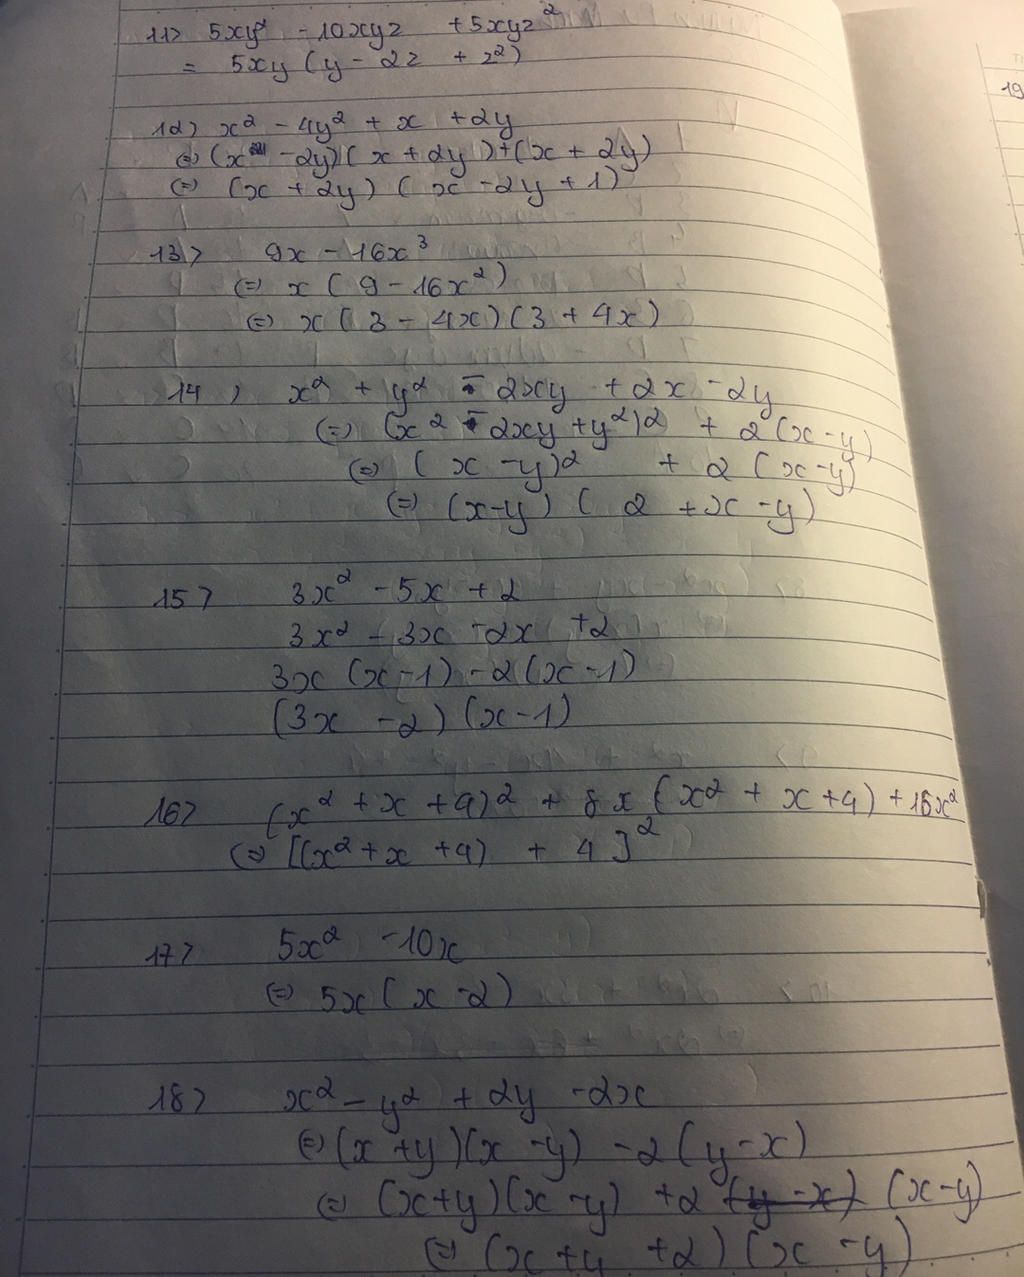 11> 5xy² - 10xyz + 5xyz²
= 5xy (y - 2z + z²)
12> x² - 4y² + x + 2y
(=) (x - 2y)(x + 2y) + (x + 2y)
(=) (x + 2y) (x - 2y + 1)
13> 9x - 16x³
(=) x (9 - 16x²)
(=) x (3 - 4x)(3 + 4x)
14) x² + y² - 2xy + 2x - 2y
(=) (x² - 2xy + y²)2 + 2(x - y)
(=) (x - y)2 + 2 (x - y)
(=) (x - y) (2 + x - y)
15> 3x² - 5x + 2
3x² - 3x - 2x + 2
3x (x - 1) - 2(x - 1)
(3x - 2) (x - 1)
16> (x² + x + 4)² + 8x (x² + x + 4) + 16x²
(=) [(x² + x + 4) + 4]²
17> 5x² - 10x
(=) 5x (x - 2)
18> x² - y² + 2y - 2x
(=) (x + y)(x - y) - 2 (y - x)
(=) (x + y)(x - y) + 2 (y - x) (x - y)
(=) (x + y + 2) (x - y)
19